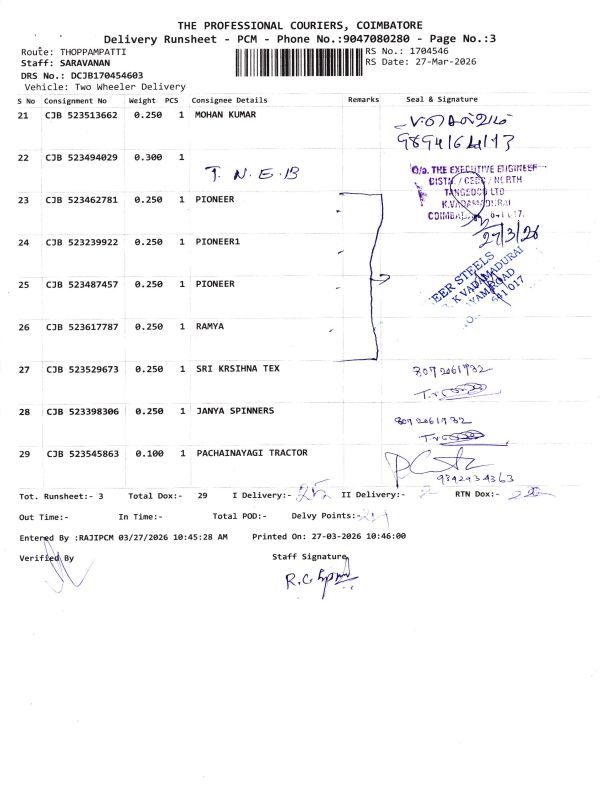 THE PROFESSIONAL COURIERS, COIMBATORE
Delivery Runsheet - PCM - Phone No.:9047080280 - Page No.:3
Route: THOPPAMPATTI
RS No.: 1704546
Staff: SARAVANAN
RS Date: 27-Mar-2026
DRS No.: DCJB170454603
Vehicle: Two Wheeler Delivery
S No Consignment No Weight PCS Consignee Details Remarks Seal & Signature
21 CJB 523513662 0.250 1 MOHAN KUMAR
22 CJB 523494029 0.300 1
T. N. E. B
O/o. THE EXECUTIVE ENGINEER
TANGEDCO LTD
K.VADAMADURAI
23 CJB 523462781 0.250 1 PIONEER
27/3/26
24 CJB 523239922 0.250 1 PIONEER1
EER STEELS
K VADAMADURAI
641 017
25 CJB 523487457 0.250 1 PIONEER
26 CJB 523617787 0.250 1 RAMYA
27 CJB 523529673 0.250 1 SRI KRSIHNA TEX
8072061732
28 CJB 523398306 0.250 1 JANYA SPINNERS
8072061732
29 CJB 523545863 0.100 1 PACHAINAYAGI TRACTOR
9342434363
Tot. Runsheet:- 3 Total Dox:- 29 I Delivery:- 25 II Delivery:- RTN Dox:-
Out Time:- In Time:- Total POD:- Delvy Points:-
Entered By :RAJIPCM 03/27/2026 10:45:28 AM Printed On: 27-03-2026 10:46:00
Verified By Staff Signature